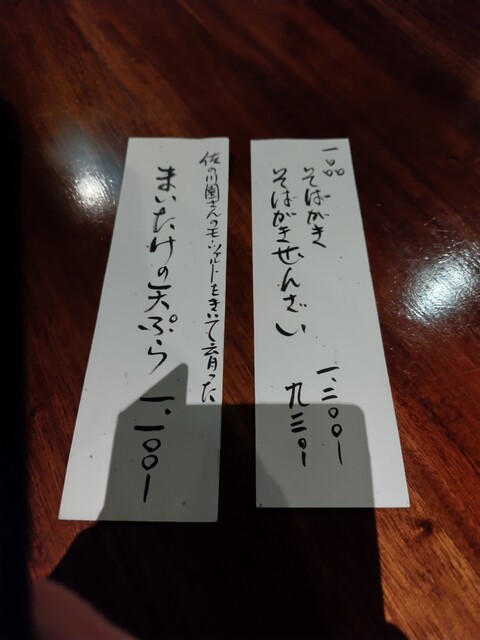 一品
そばがき 一、二〇〇ー
そばがきぜんざい 九三〇ー
佐の川園さんのモーツァルトをきいて育った
まいたけの天ぷら 一、一〇〇ー